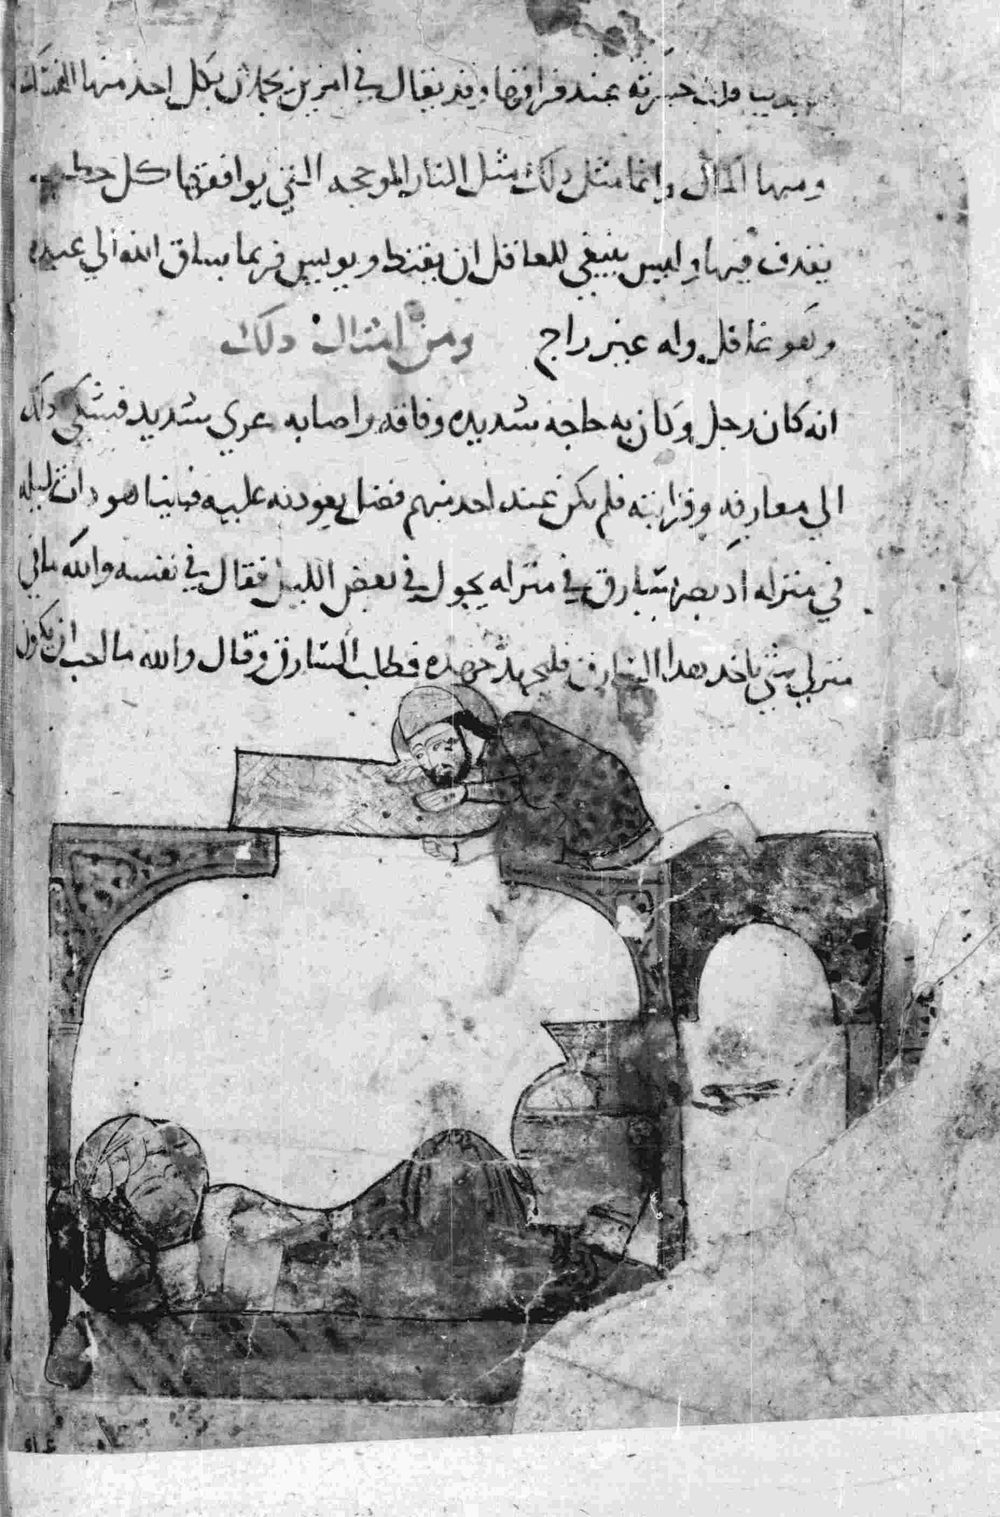 عند فراقها وقد يقال في امرين يجلان بكل احد منها
ومنها المال وانما مثل دلك مثل النار الموججه التي يوافقها كل حطب
يقذف فيها وليس ينبغي للعاقل ان يقنط وييس فربما ساق الله الي عبده
وهو غافل وله غير راج ومن امثال دلك
انه كان رجل وكان به حاجة شديده وفاقه واصابه عري شديد فشكي دلك
الي معارفه وقرابته فلم يكن عند احد منهم فضل يعود به عليه فبينا هو دات ليله
في منزله اد بصر بسارق في منزله يجول في بعض الليل فقال في نفسه والله ما في
منزلي شي ياخد هدا السارق فليجهد جهده فطلب السارق وقال والله ما احب ان يكون